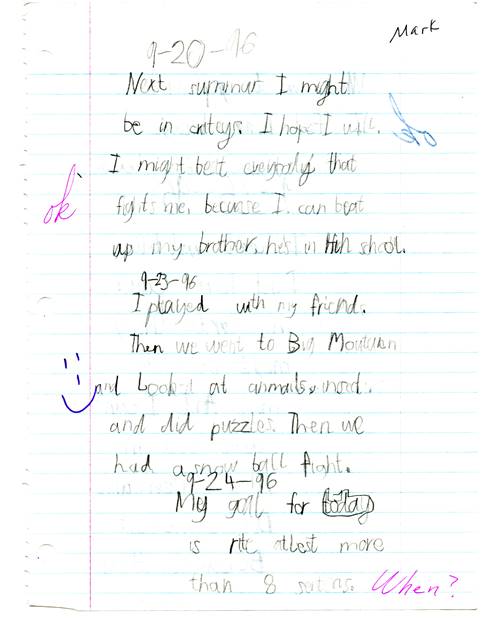 Mark
9-20-96
Next summur I might
be in I hope I will.
I might beat that
ok
fights me, because I can beat
up my brother, he's in Hih shcool.
9-23-96
I played with my friend.
Then we went to Big
and Looked at
and did puzzles. Then we
had a snow ball fight.
9-24-96
My goal for today
is more
than 8
When?